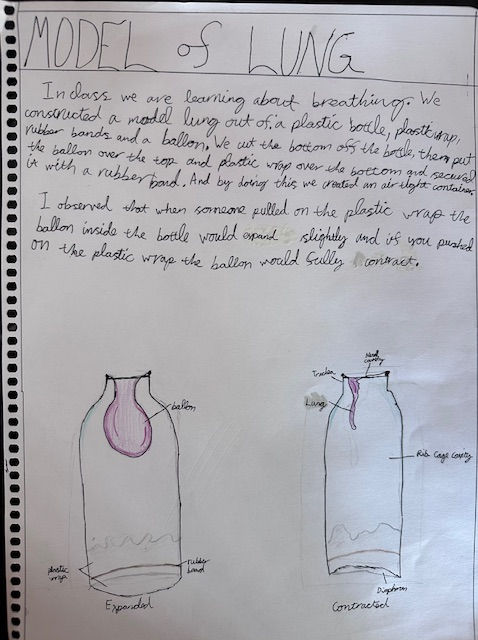 MODEL of LUNG
In class we are learning about breathing. We
constructed a model lung out of a plastic bottle, plastic wrap,
rubber bands and a balloon. We cut the bottom off the bottle, then put
the ballon over the top and plastic wrap over the bottom and secured
it with a rubber band. And by doing this we created an air tight container
I observed that when someone pulled on the plastic wrap the
ballon inside the bottle would expand slightly and if you pushed
on the plastic wrap the ballon would fully contract.
ballon
plastic
wrap
rubber
band
Expanded
Nasal
cavity
Trachea
Lung
Rib Cage Cavity
Diaphram
Contracted